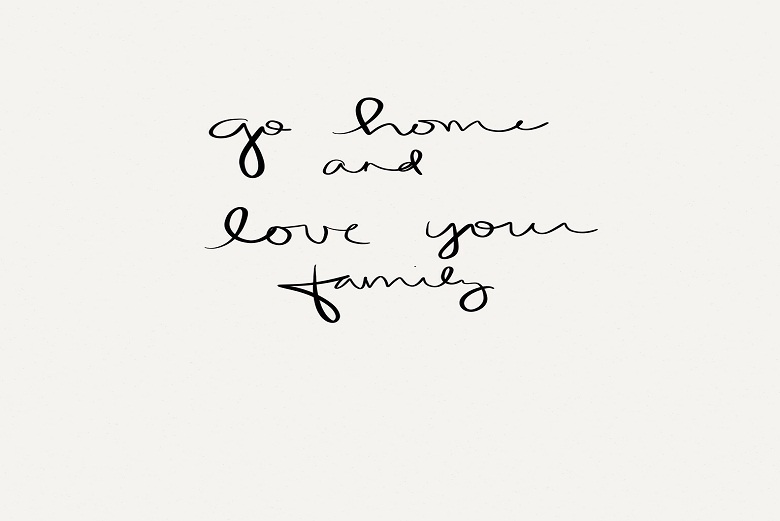 go home
and
love your
family